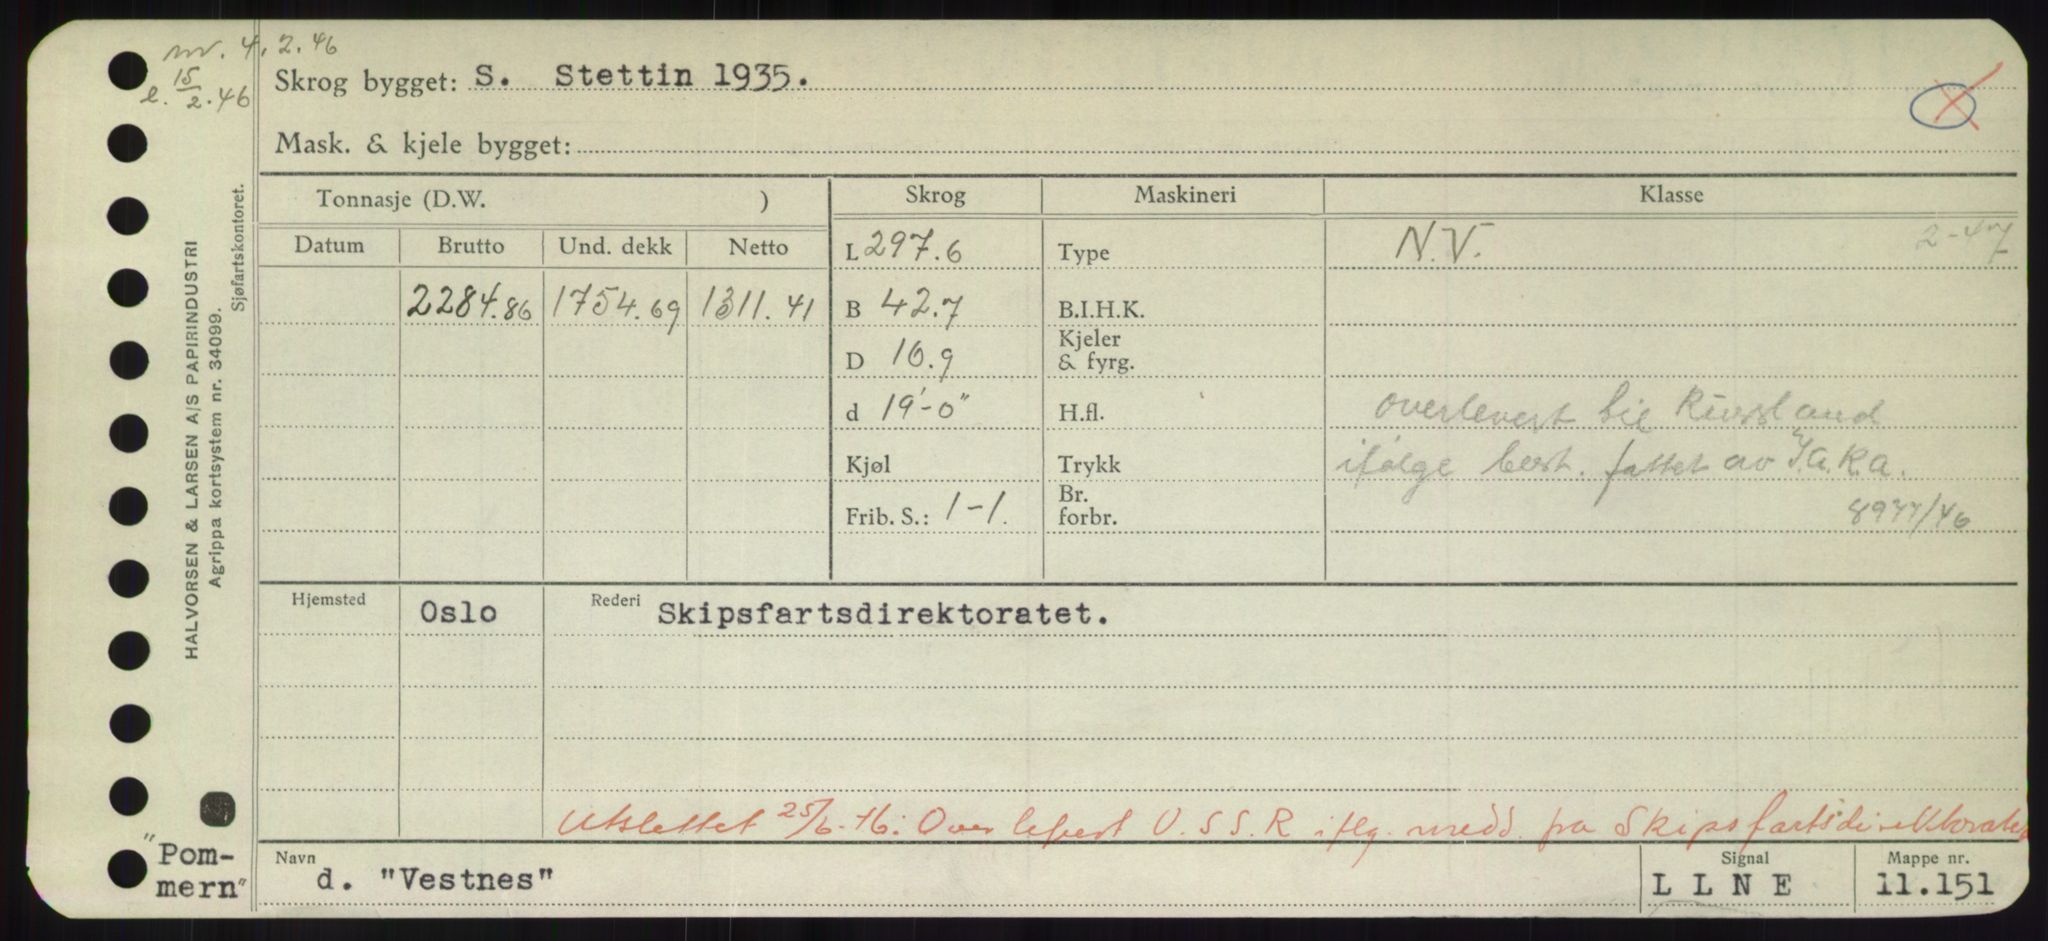 nv. 4.2.46
e. 15/2.46
Skrog bygget: S. Stettin 1935.
Mask. & kjele bygget:
HALVORSEN & LARSEN A/S PAPIRINDUSTRI
Agrippa kortsystem nr. 34099.
Sjøfartskontoret.
Tonnasje (D.W. )
Skrog
Maskineri
Klasse
Datum
Brutto
Und. dekk
Netto
2284.86
1754.69
1311.41
L 297.6
B 42.7
D 16.9
d 19'-0"
Kjøl
Frib. S.: 1-1.
Type
B.I.H.K.
Kjeler
& fyrg.
H.fl.
Trykk
Br.
forbr.
N.V. 2-47
overlevert til Russland
ifølge best. fattet av
/46
Hjemsted
Oslo
Rederi
Skipsfartsdirektoratet.
Utslettet 25/6-46. Overlevert U.S.S.R iflg. medd. fra Skipsfartsdirektoratet
"Pom-
mern"
Navn
d. "Vestnes"
Signal
L L N E
Mappe nr.
11.151